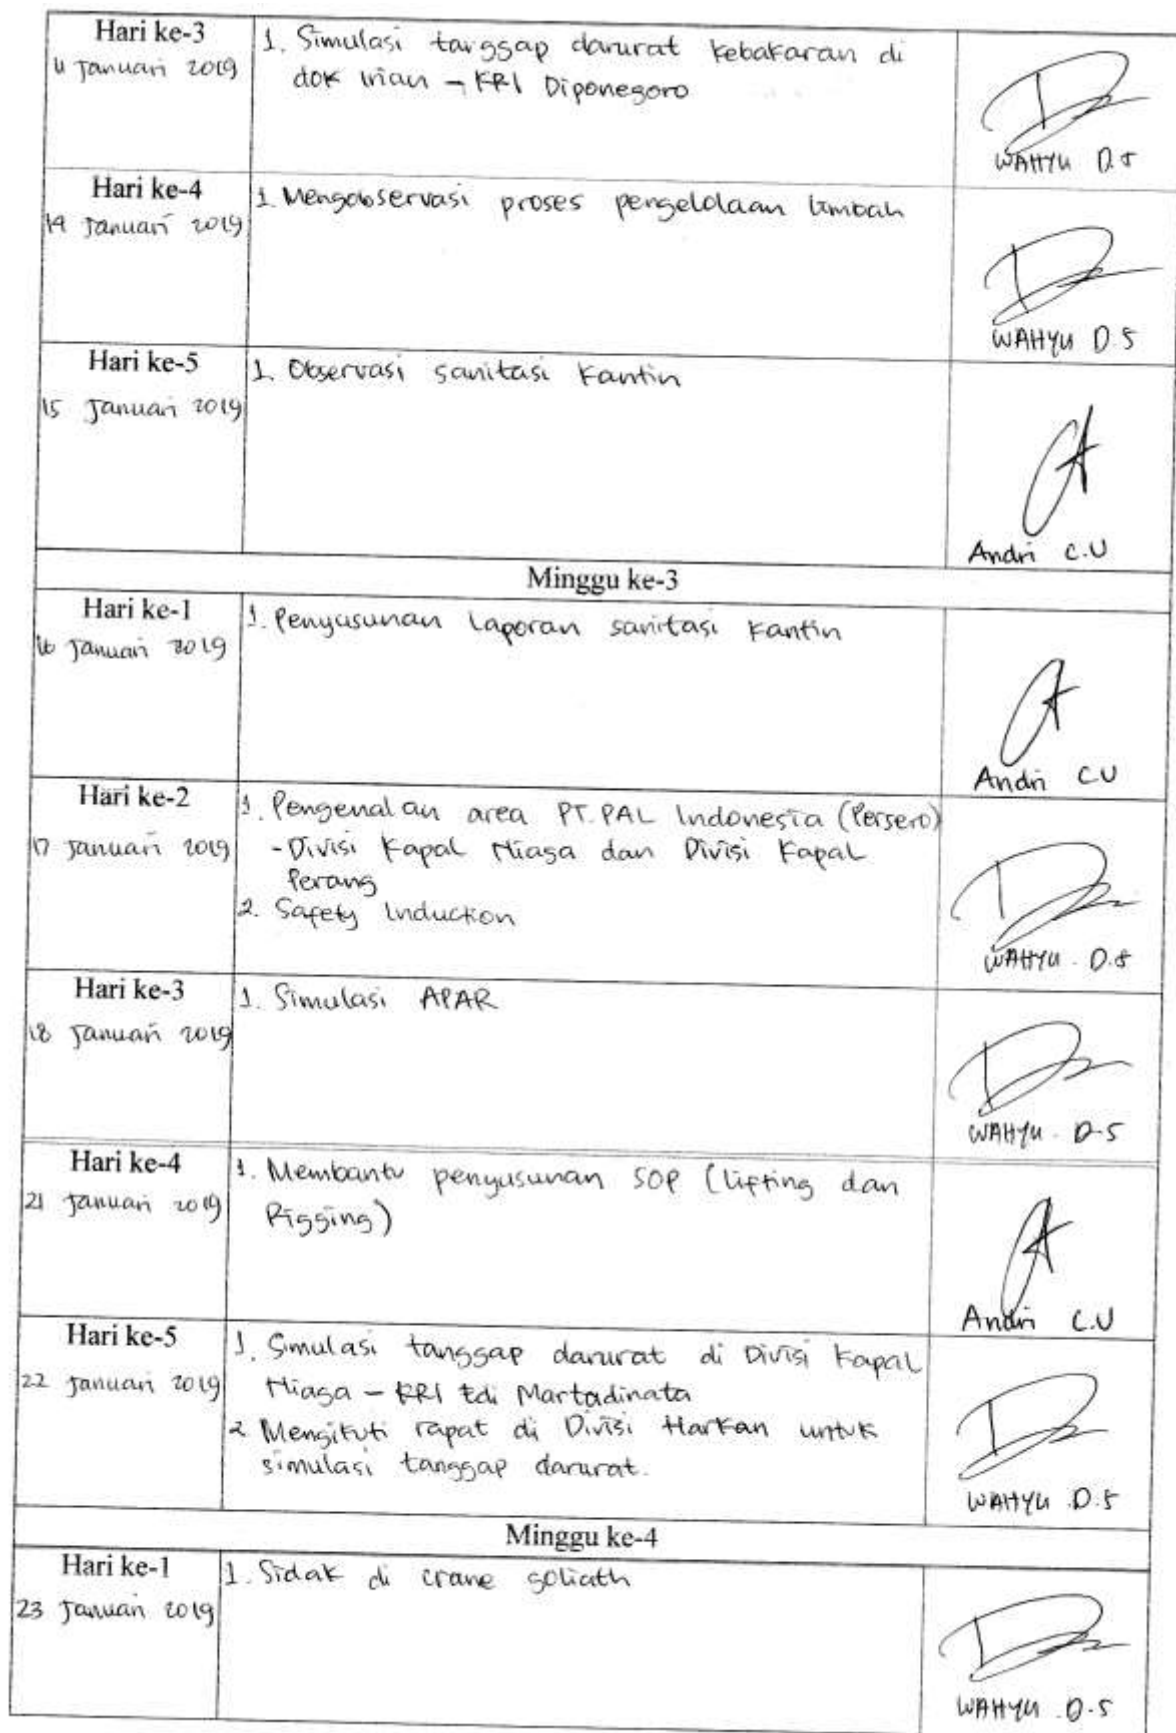 Hari ke-3
11 Januari 2019
1. Simulasi tanggap darurat kebakaran di
dok irian → KRI Diponegoro
WAHYU D.S
Hari ke-4
14 Januari 2019
1. Mengobservasi proses pengelolaan limbah
WAHYU D.S
Hari ke-5
15 Januari 2019
1. Observasi sanitasi kantin
Andri C.U
Minggu ke-3
Hari ke-1
16 Januari 2019
1. Penyusunan laporan sanitasi kantin
Andri C.U
Hari ke-2
17 Januari 2019
1. Pengenalan area PT. PAL Indonesia (Persero)
- Divisi Kapal Niaga dan Divisi Kapal
Perang
2. Safety Induction
WAHYU. D.S
Hari ke-3
18 Januari 2019
1. Simulasi APAR
WAHYU. D.S
Hari ke-4
21 Januari 2019
1. Membantu penyusunan SOP (Lifting dan
Rigging)
Andri C.U
Hari ke-5
22 Januari 2019
1. Simulasi tanggap darurat di Divisi Kapal
Niaga - KRI Edi Martadinata
2. Mengikuti rapat di Divisi Harkan untuk
simulasi tanggap darurat.
WAHYU .D.S
Minggu ke-4
Hari ke-1
23 Januari 2019
1. Sidak di crane goliath
WAHYU .D.S